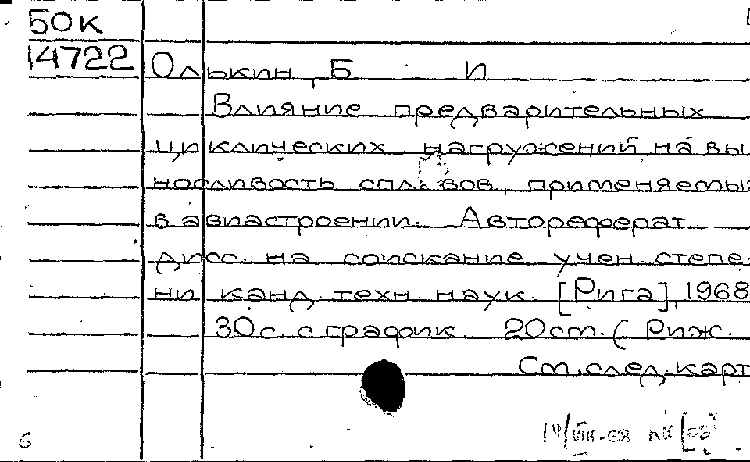 50к
14722
Олькин, Б И
Влияние предварительных
циклических нагружений на вы
носливость сплавов, применяемы
в авиастроении. Автореферат
дисс. на соискание учен степе-
ни канд. техн наук. [Рига], 1968
30с. с график. 20см. (Риж.
См.след.карт
6